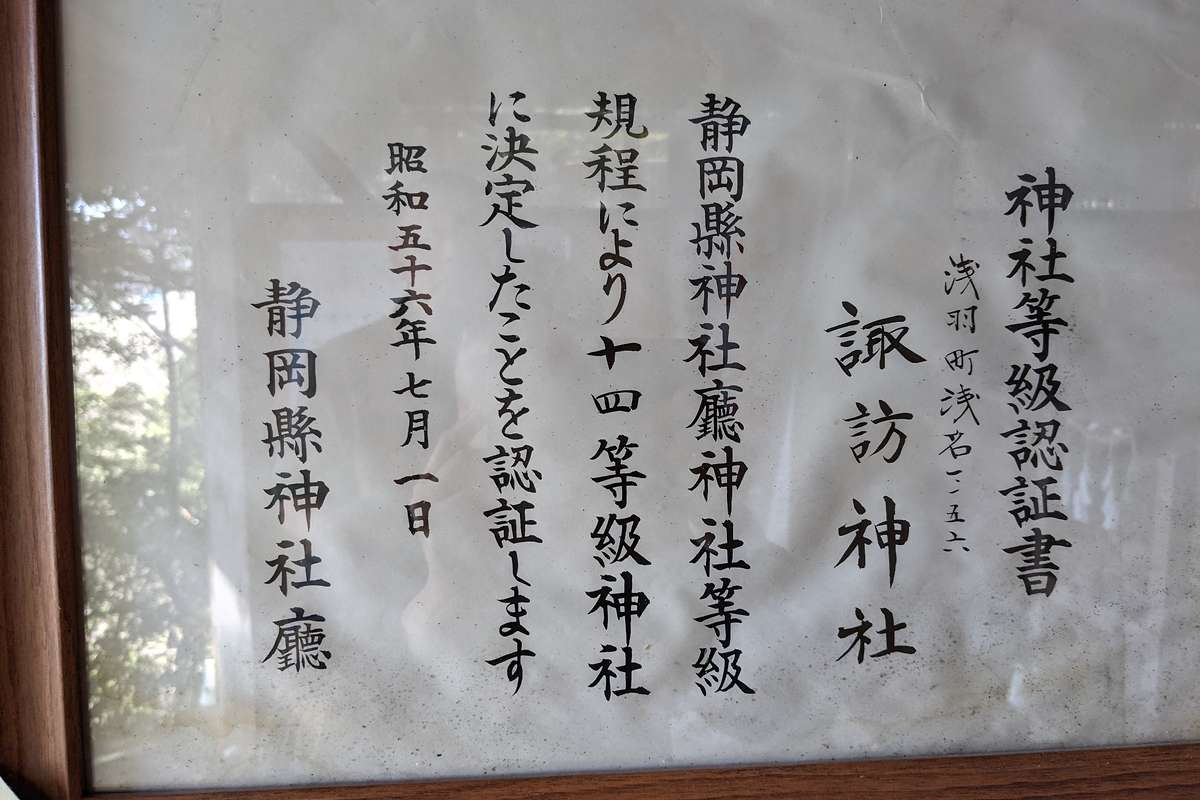 神社等級認証書
浅羽町浅名一二五六
諏訪神社
静岡縣神社廳神社等級
規程により十四等級神社
に決定したことを認証します
昭和五十六年七月一日
静岡縣神社廳